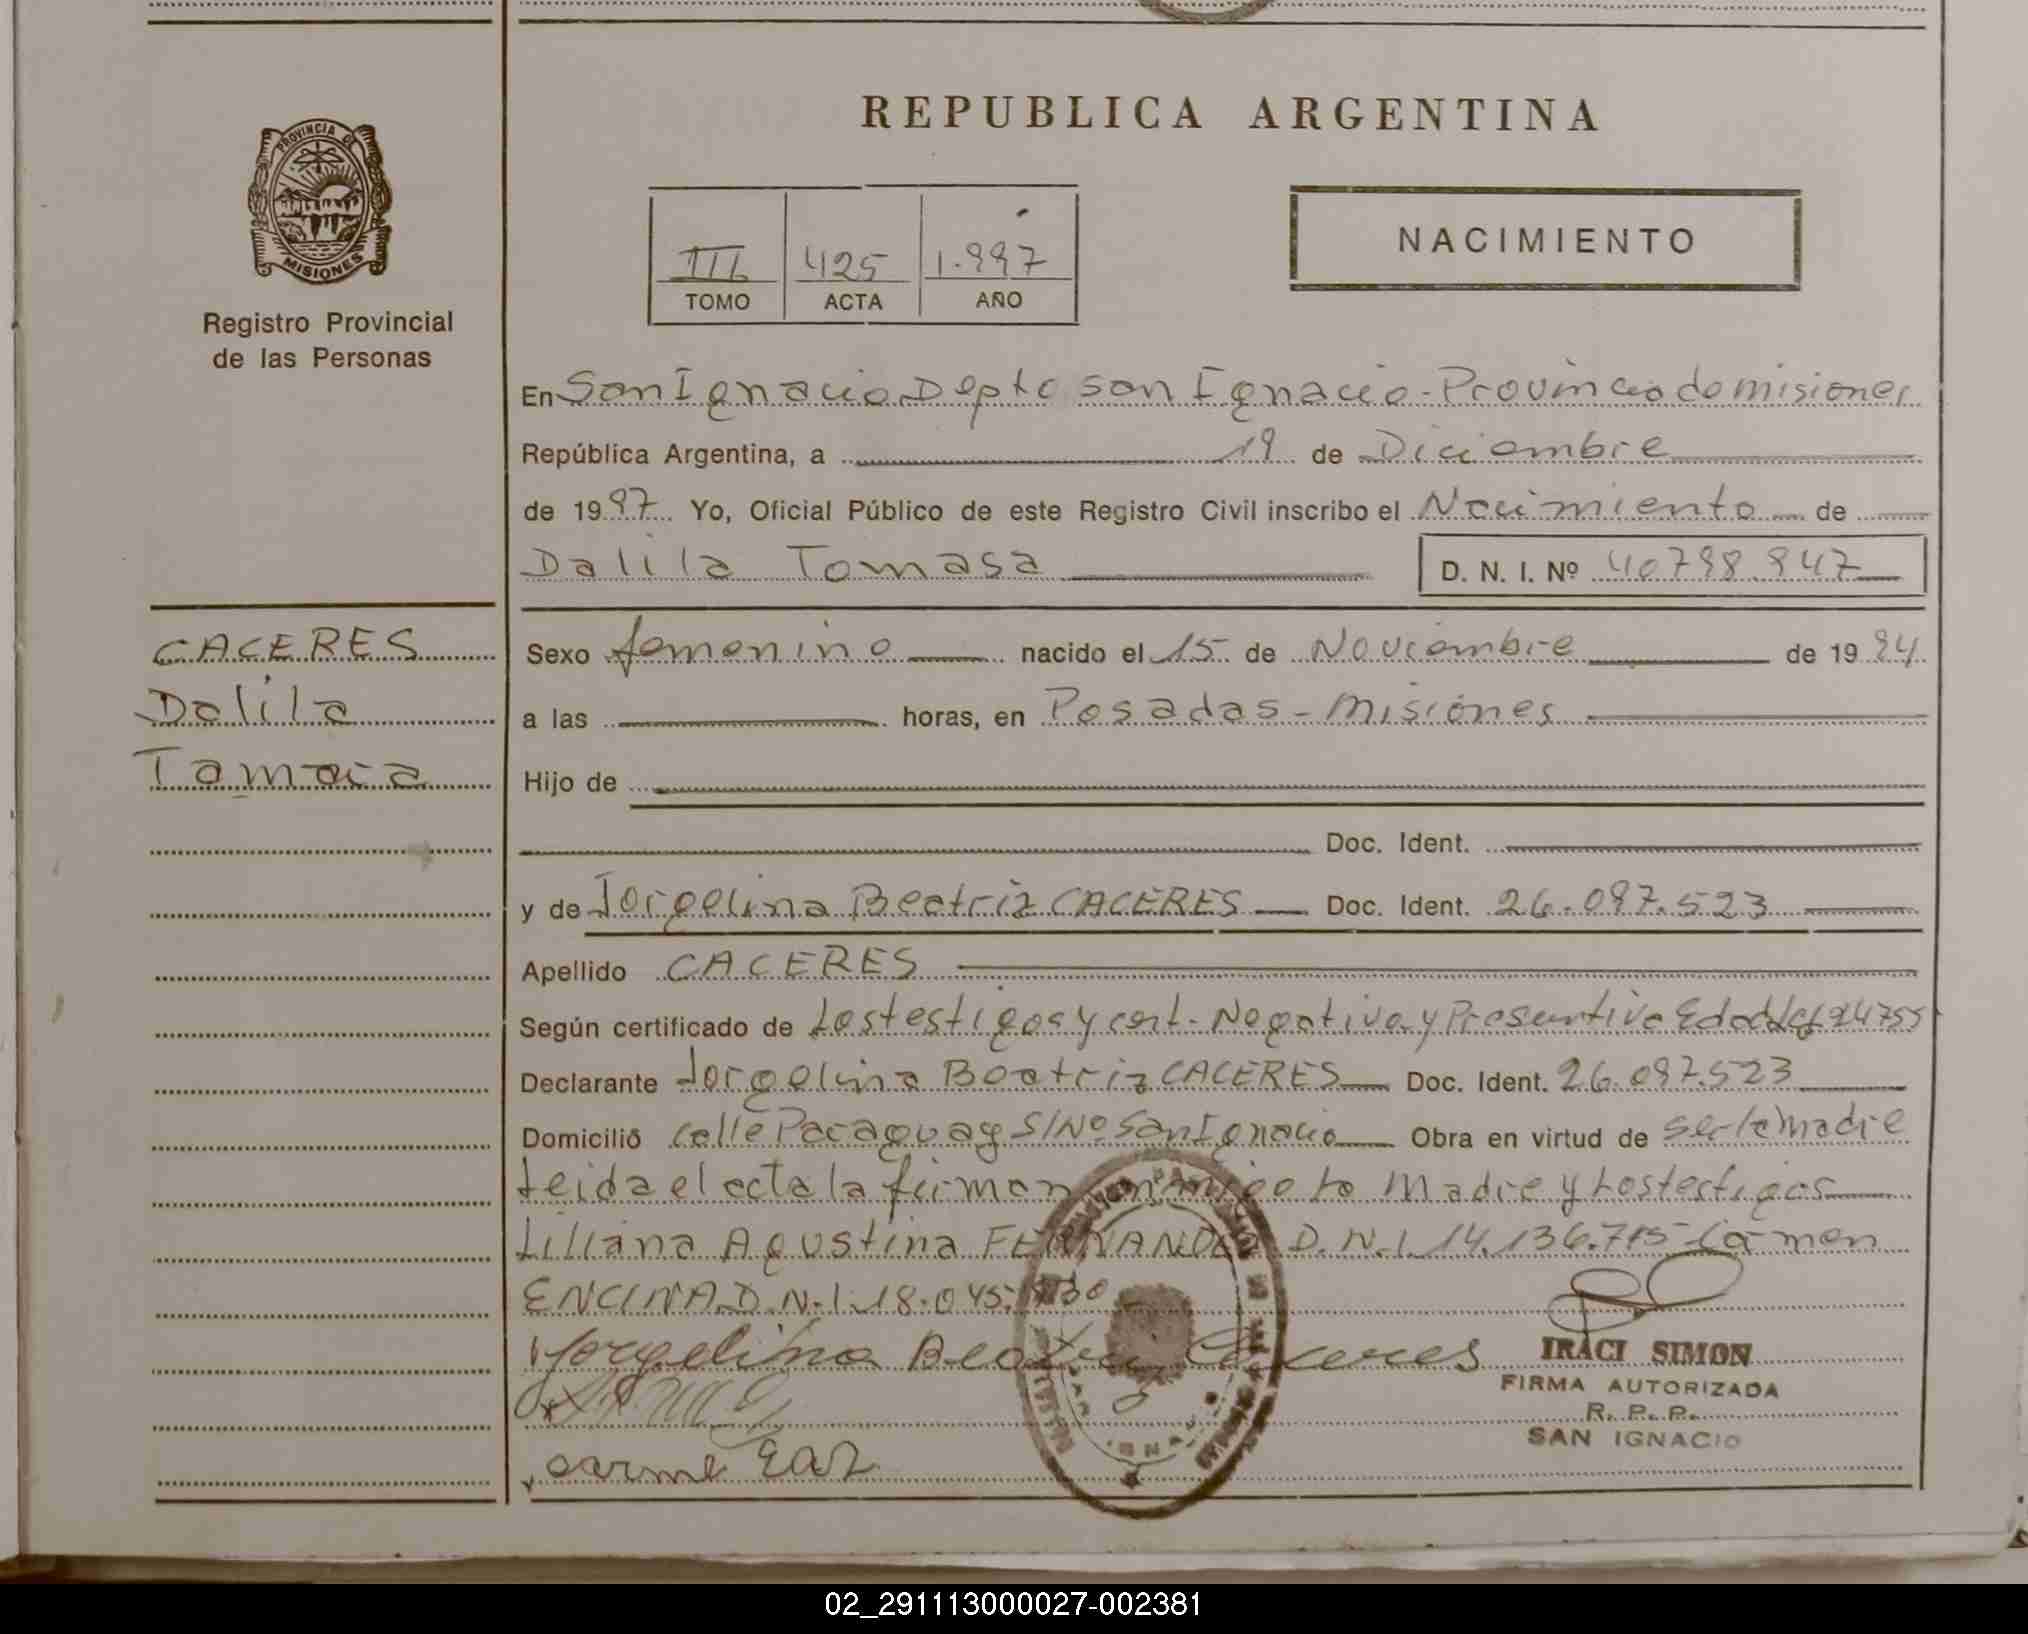 REPUBLICA ARGENTINA
PROVINCIA DE
MISIONES
Registro Provincial
de las Personas
III 425 1.997
TOMO ACTA AÑO
NACIMIENTO
En San Ignacio Depto San Ignacio - Provincia de misiones
República Argentina, a 19 de Diciembre
de 1997 Yo, Oficial Público de este Registro Civil inscribo el Nacimiento de
Dalila Tomasa D. N. I. Nº 40798.947
CACERES
Dalila
Tamara
Sexo femenino nacido el 15 de Noviembre de 1994
a las horas, en Posadas - Misiones
Hijo de
Doc. Ident.
y de Jorgelina Beatriz CACERES Doc. Ident. 26.097.523
Apellido CACERES
Según certificado de Los testigos y cert. Negativa y Presuntiva Edad 24755
Declarante Jorgelina Beatriz CACERES Doc. Ident. 26.097.523
Domicilió calle Paraguay S/Nº San Ignacio Obra en virtud de ser la madre
Leida el acta la firman conmigo la Madre y Los testigos
Liliana Agustina FERNANDEZ D.N.I. 14.136.715 - Carmen
ENCINA D.N.I. 18.045.
Jorgelina Beatriz Caceres
IRACI SIMON
FIRMA AUTORIZADA
R. P. P.
SAN IGNACIO
02_291113000027-002381